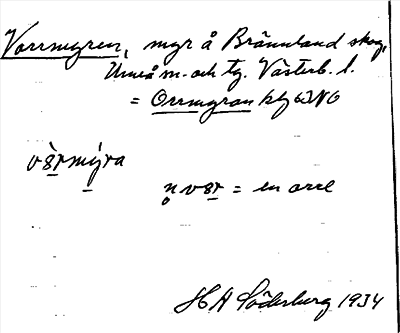 Vorrmyren, myr å Brännland skog,
Umeå m. och tg. Västerb. l.
= Orrmyran kbl 63 NO
vȯrmýra
n̥ vȯr = en orre
H A Söderburg 1934